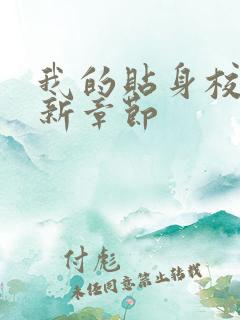 我的贴身校
新章节
付彪
未经同意禁止转载